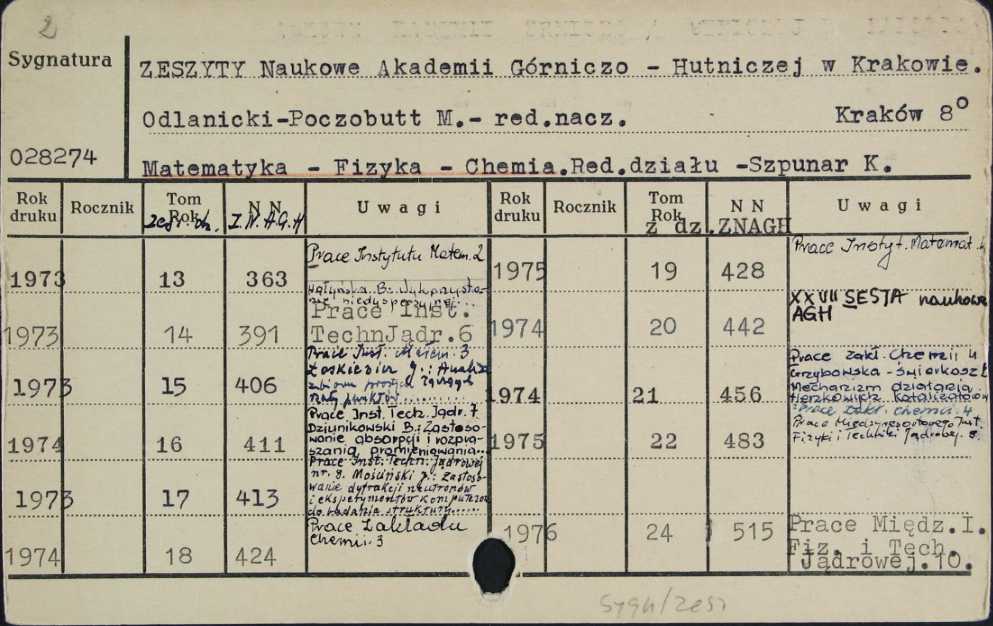 2
Sygnatura
ZESZYTY Naukowe Akademii Górniczo - Hutniczej w Krakowie.
Odlanicki-Poczobutt M.- red.nacz. Kraków 8°
028274
Matematyka - Fizyka - Chemia.Red.działu -Szpunar K.
Rok druku Rocznik Tom Rok N N Uwagi Rok druku Rocznik Tom Rok N N Uwagi
Z.N.A.G.H z dz. ZNAGH
1973 13 363 Prace Instytutu Matem. 2
1973 14 391 Prace Inst.
TechnJądr.6
1973 15 406 Prace Inst. Matem. 3
1974 16 411 Prace Inst. Tech. Jądr. 7
Dziunikowski B: Zastoso-
wanie absorpcji i rozpra-
szania promieniowania...
1973 17 413 Prace Inst. Techn. Jądrowej
nr. 8. Mościński J.: Zastoso-
wanie dyfrakcji neutronów
i eksperymentów komputerow
do badania struktury......
1974 18 424 Prace Zakładu
Chemii. 3
1975 19 428 Prace Instyt. Matemat. 4
1974 20 442 XXVII SESJA naukowa
AGH
1974 21 456 Prace Zakł. Chemii 4
Grzybowska - Świerkosz
Mechanizm działania
tlenkowych katalizatorów
Prace Zakł. Chemii. 4
1975 22 483 Prace Międzyresortowego Inst.
Fizyki i Techniki Jądrowej. 8.
1976 24 515 Prace Międz.I.
Fiz. i Tech.
Jądrowej.10.
Sygn/zesz